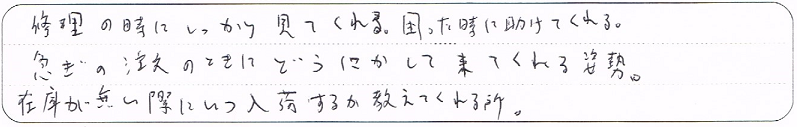 修理の時にしっかり見てくれる。困った時に助けてくれる。
急ぎの注文のときにどうにかして来てくれる姿勢。
在庫が無い際にいつ入荷するか教えてくれる所。